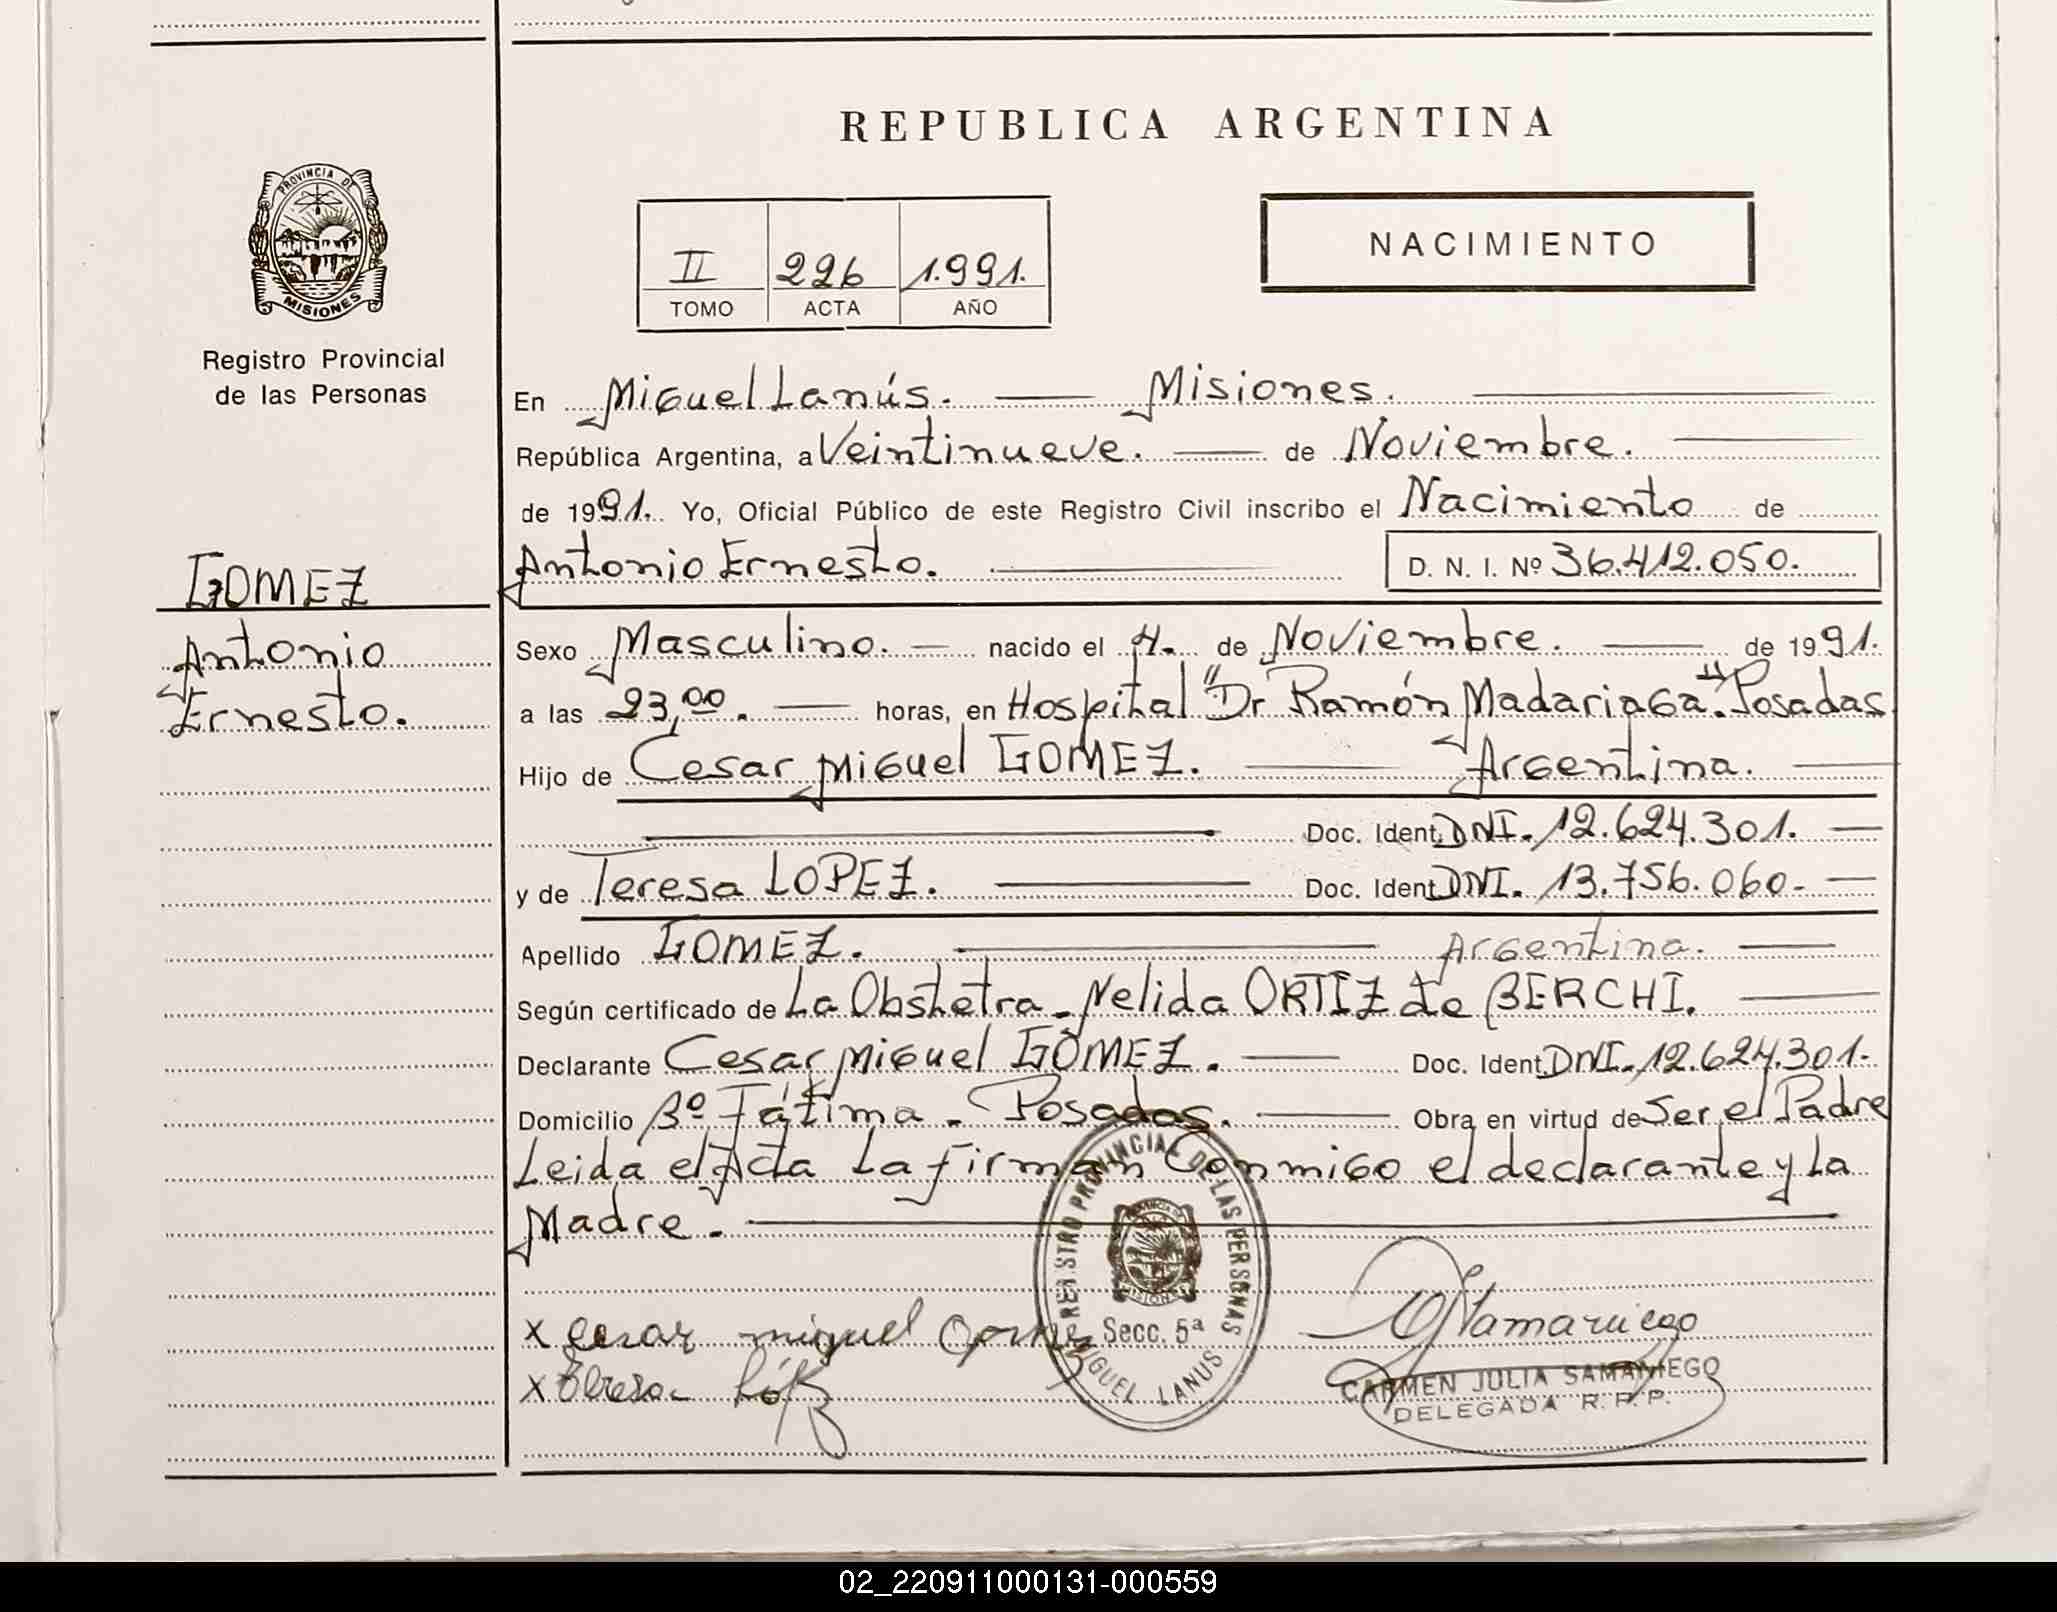 REPUBLICA ARGENTINA
PROVINCIA DE
MISIONES
Registro Provincial
de las Personas
II 226 1.991.
TOMO ACTA AÑO
NACIMIENTO
En Miguel Lanús. Misiones.
República Argentina, a Veintinueve. de Noviembre.
de 1991. Yo, Oficial Público de este Registro Civil inscribo el Nacimiento de
Antonio Ernesto. D. N. I. Nº 36.412.050.
GOMEZ
Antonio
Ernesto.
Sexo Masculino. nacido el 4. de Noviembre. de 1991.
a las 23,00. horas, en Hospital "Dr Ramón Madariaga". Posadas
Hijo de Cesar Miguel GOMEZ. Argentina.
Doc. Ident. DNI. 12.624.301.
y de Teresa LOPEZ. Doc. Ident. DNI. 13.756.060.
Apellido GOMEZ. Argentina.
Según certificado de La Obstetra. Nelida ORTIZ de BERCHI.
Declarante Cesar Miguel GOMEZ. Doc. Ident. DNI. 12.624.301.
Domicilio Bº Fátima. Posadas. Obra en virtud de Ser el Padre
Leida el Acta La firman Conmigo el declarante y La
Madre.
REGISTRO PROVINCIAL DE LAS PERSONAS
MISIONES
Secc. 5ª
MIGUEL LANUS
x Cesar miguel Gomez
x Teresa López
CARMEN JULIA SAMANIEGO
DELEGADA R. P. P.
02_220911000131-000559